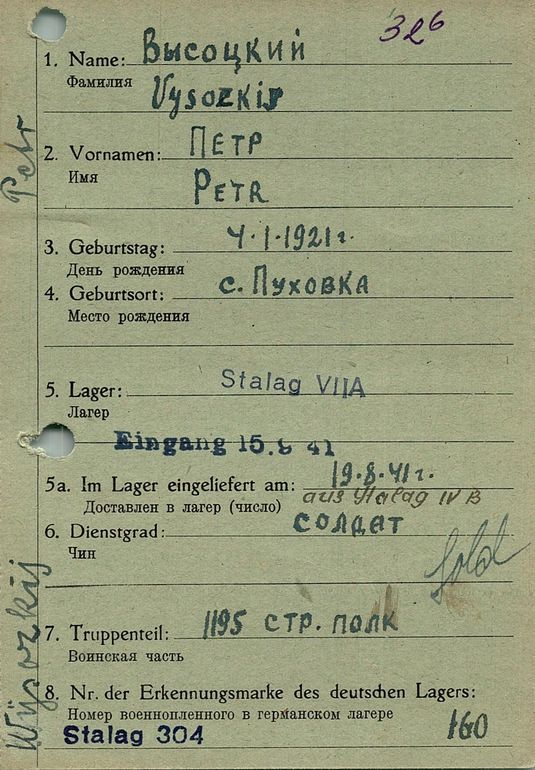 326
1. Name: Высоцкий
Фамилия Vysozkij
2. Vornamen: Петр
Имя
Petr
3. Geburtstag: 4.1.1921г.
День рождения
4. Geburtsort: с. Пуховка
Место рождения
5. Lager: Stalag VIIA
Лагер
Eingang 15.9 41
5a. Im Lager eingeliefert am: 19.8.41г.
Доставлен в лагер (число) aus Stalag IV B
6. Dienstgrad: солдат
Чин
Sold
7. Truppenteil: 1195 стр. полк
Воинская часть
8. Nr. der Erkennungsmarke des deutschen Lagers:
Номер военнопленного в германском лагере
160
Stalag 304
Wysozkij Petr